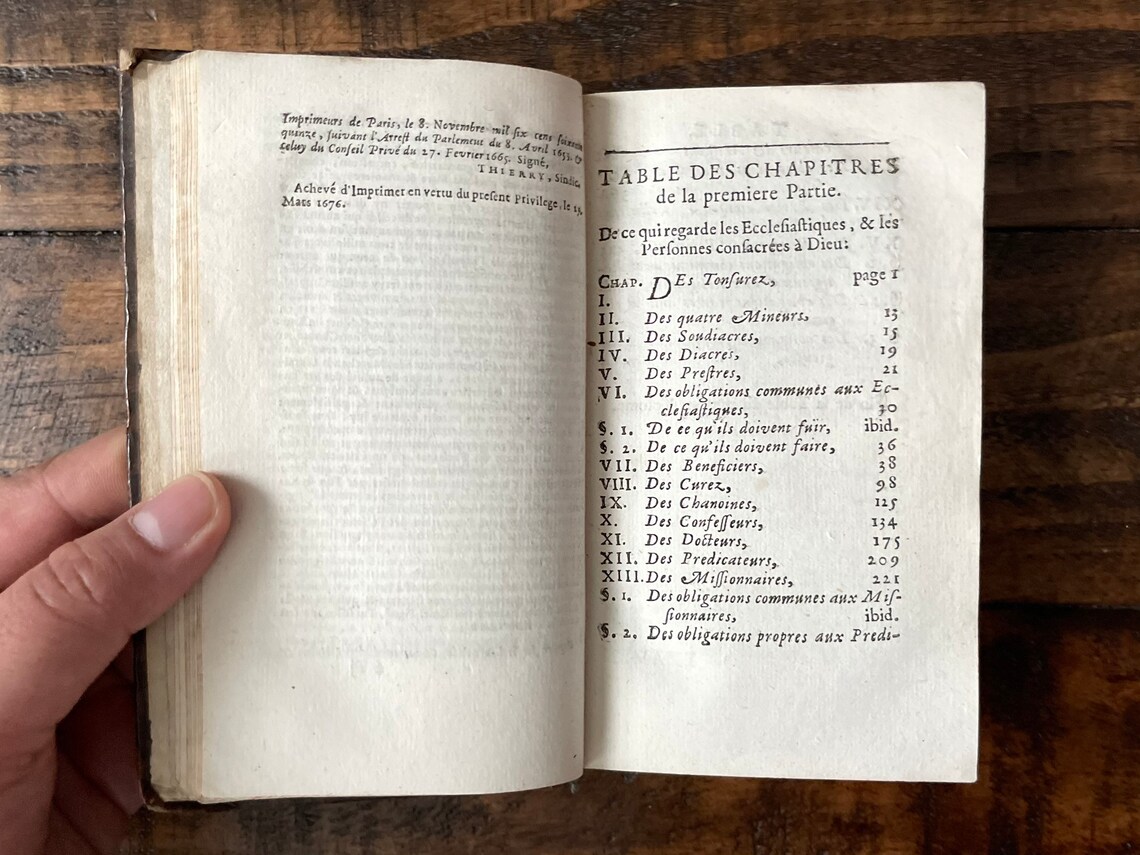 Imprimeurs de Paris, le 8. Novembre mil ſix cens ſoixante
quinze, ſuivant l'Arreſt du Parlement du 8. Avril 1653. &
celuy du Conſeil Privé du 27. Fevrier 1665. Signé,
THIERRY, Sindic.
Achevé d'Imprimer en vertu du preſent Privilege, le
Mars 1676.
TABLE DES CHAPITRES
de la premiere Partie.
De ce qui regarde les Eccleſiaſtiques, & les
Perſonnes conſacrées à Dieu:
CHAP. DEs Tonſurez, page 1
I.
II. Des quatre Mineurs, 13
III. Des Soudiacres, 15
IV. Des Diacres, 19
V. Des Preſtres, 21
VI. Des obligations communes aux Ec-
cleſiaſtiques, 30
§. 1. De ce qu'ils doivent fuïr, ibid.
§. 2. De ce qu'ils doivent faire, 36
VII. Des Beneficiers, 38
VIII. Des Curez, 98
IX. Des Chanoines, 125
X. Des Confeſſeurs, 134
XI. Des Docteurs, 175
XII. Des Predicateurs, 209
XIII. Des Miſſionnaires, 221
§. 1. Des obligations communes aux Miſ-
ſionnaires, ibid.
§. 2. Des obligations propres aux Predi-